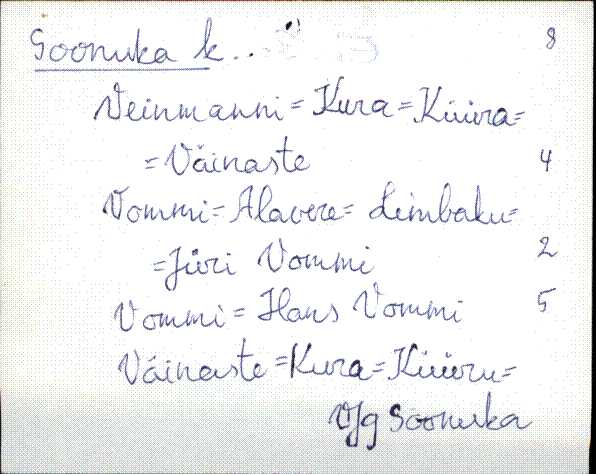 Soonuka k.. 8
Veinmanni = Kura = Küüra =
= Väinaste 4
Vommi = Alavere = Limbaku =
= Jüri Vommi 2
Vommi = Hans Vommi 5
Väinaste = Kura = Küüru =
Vjg Soonuka